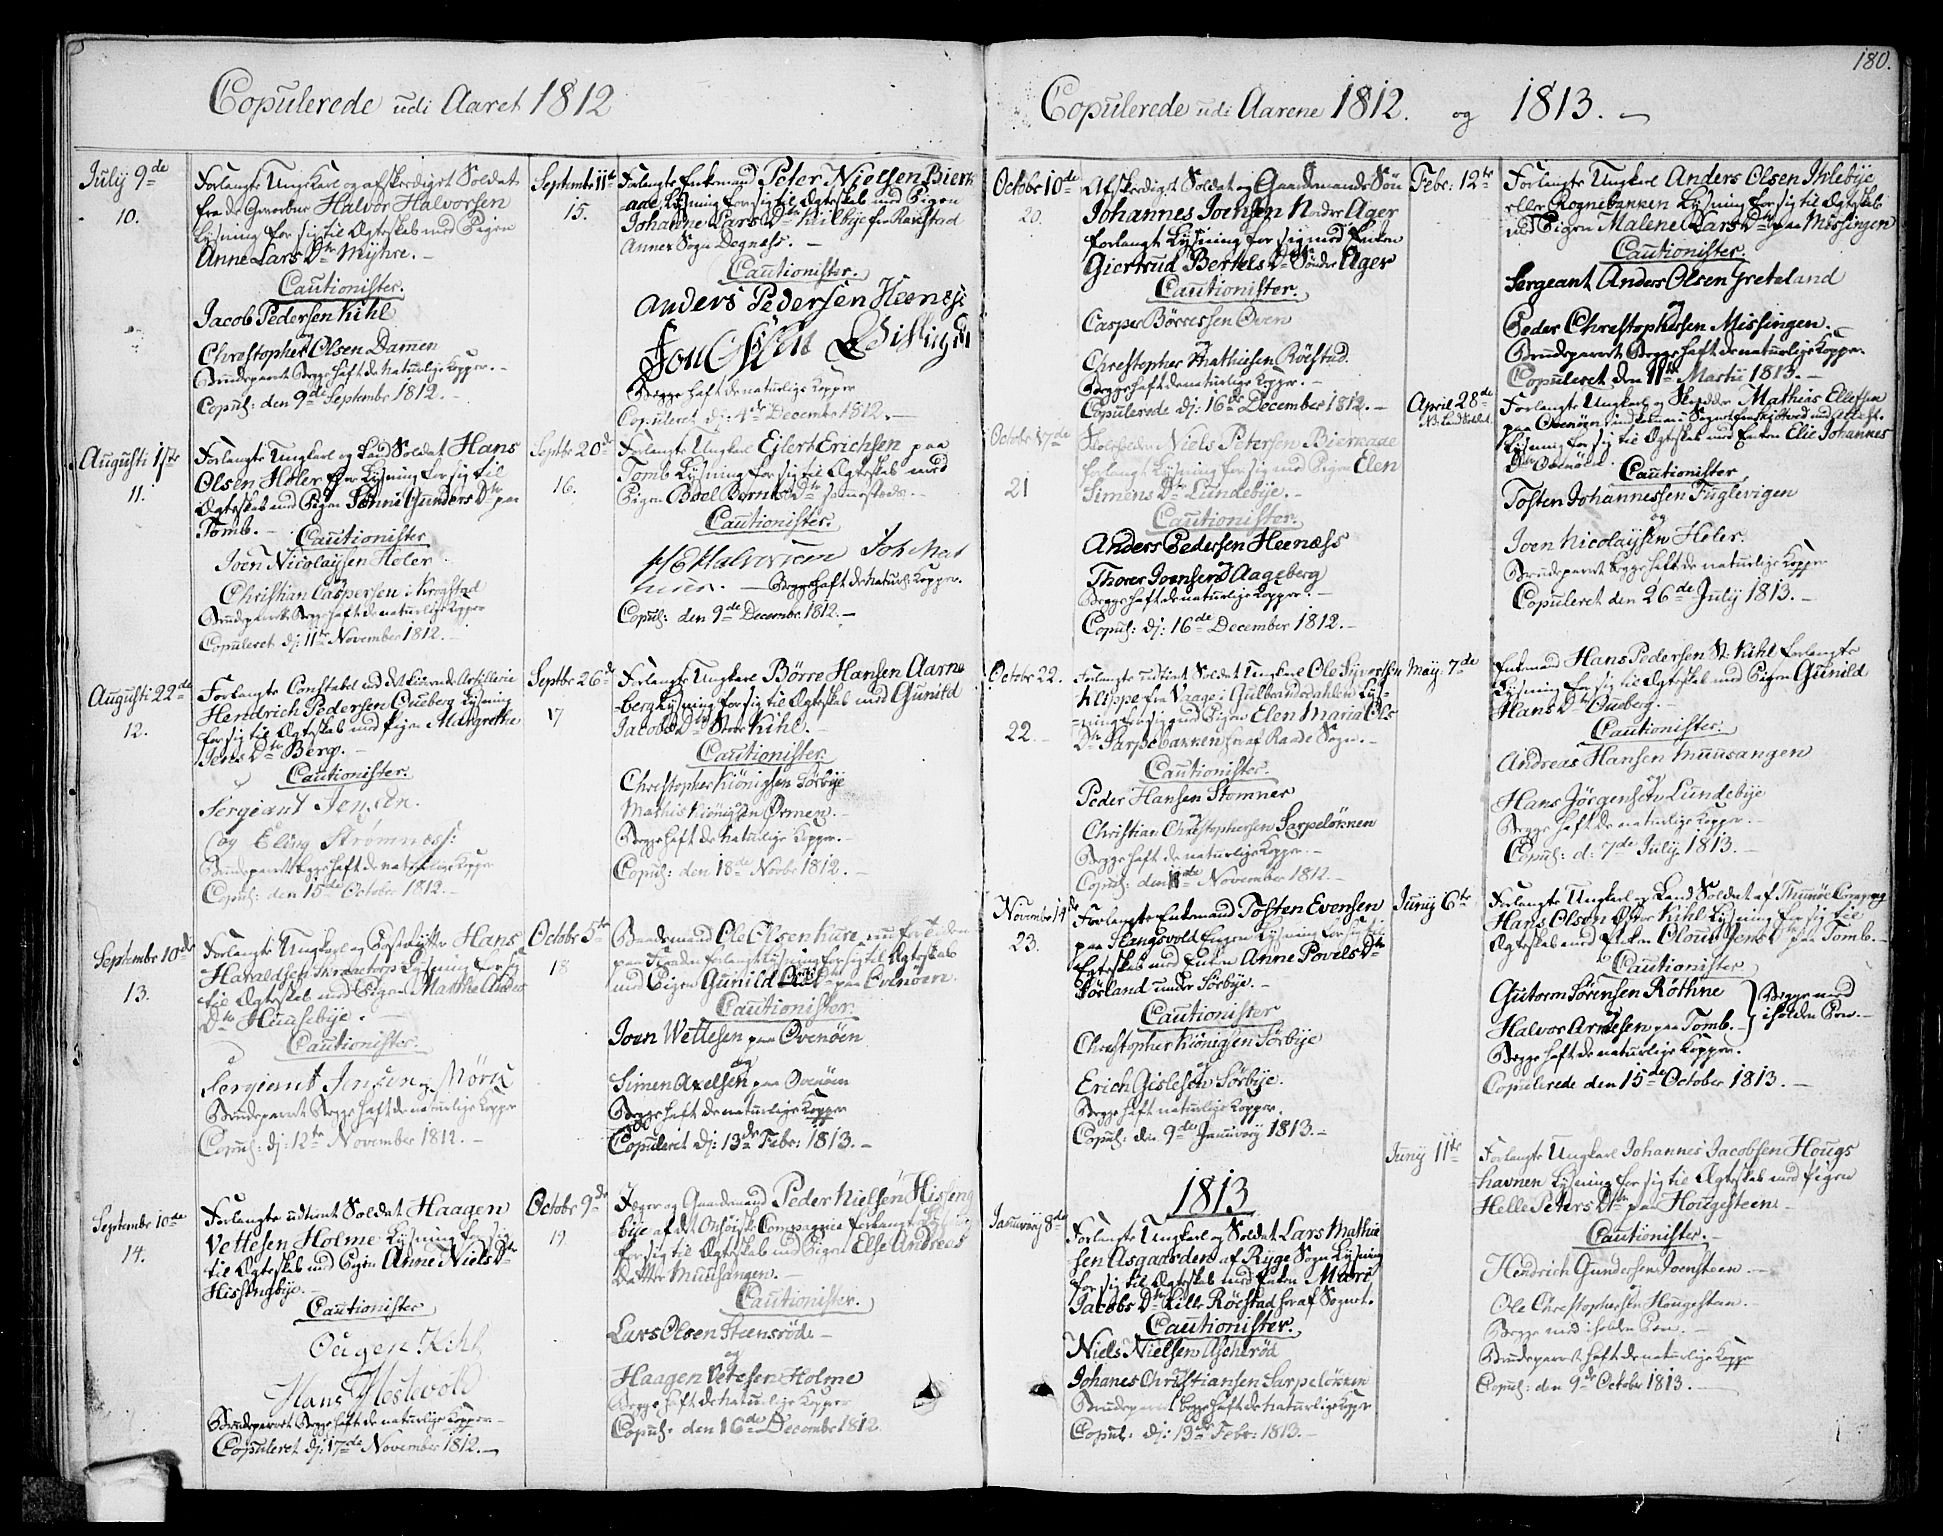 180.
Copulerede udi Aaret 1812
July 9de
10.
Forlangte Ungkarl og afskediget Soldat
fra de Gevorbne Halvor Halvorsen
Lysning for sig til Ægteskab med Pigen
Anne Lars Dtr Myhre. -
Cautionister.
Jacob Pedersen Kihl
og
Christopher Olsen Damen
Brudeparret Begge haft de naturlige Kopper. -
Copul: den 9de Septembr 1812. -
Augusti 1ste
11.
Forlangte Ungkarl og Land Soldat Hans
Olsen Høler Lysning for sig til
Ægteskab med Pigen Gunders Dtr paa
Tomb. -
Cautionister
Joen Nicolayssen Høler
og
Christian Caspersen i Krogstad
Brudeparret Begge haft de naturlige Kopper
Copuleret dj: 11te November 1812. -
Augusti 22de
12.
Forlangte Constabel ved det Artillerie
Hendrich Pedersen Oueberg Lysning
for sig til Ægteskab med Pigen Margrethe
Jens Dtr Berg. -
Cautionister.
Sergiant Jensen.
og Elling Strømness:
Brudeparret Begge haft de naturlige Kopper
Copul: den 15de October 1812. -
Septembr 10de
13.
Forlangte Ungkarl og Hans
Haraldsen Lysning for sig
til Ægteskab med Pigen Marthe
Dtr Huusebye. -
Cautionister.
Sergiant Jensen og Mørk
Brudeparret Begge haft de naturlige Kopper
Copul: dj: 12te November 1812. -
Septembr 10de
14.
Forlangte udtient Soldat Haagen
Vettesen Holme Lysning for sig
til Ægteskab med Pigen Anne Niels Dtr
Hissingbye. -
Cautionister
Kihl
Hans
Brudeparret Begge haft de naturlige Kopper -
Copuleret dj: 17de November 1812. -
Septembr 11te
15.
Forlangte Enkemand Peter Nielsen Bierk
aae Lysning for sig til Ægteskab med Pigen
Johanne Lars Dtr Kilbye fra Rakestad
Annex Sogn Degness. -
Cautionister.
Anders Pedersen Heenæss
Begge haft de naturlige Kopper
Copuleret dj: 4de December 1812. -
Septbr 20de
16.
Forlangte Ungkarl Ejlert Erichsen paa
Tomb Lysning for sig til Ægteskab med
Pigen Boel Bernts Dtr sammesteds. -
Cautionister.
Halvorsen
Begge haft de naturl: Kopper.
Copul: den 9de Decembr 1812. -
Septbr 26de
17
Forlangte Ungkarl Børre Hansen Aarne
berg Lysning for sig til Ægteskab med Gunild
Jacobs Dtr Store Kihl. -
Cautionister.
Christopher Kiønigsen Sørbye
og
Mathis Kiønigsen Ørmen. -
Begge haft de naturlige Kopper. -
Copul: den 18de Novbr 1812. -
Octobr 5te
18
Ole Olsen Huse
Lysning for sig til Ægteskab
med Pigen Gunild Dtr paa Evenøen.
Cautionister.
Joen Wettesen paa Ovenøen
og
Simen Axelsen paa Ovenøen
Begge haft de naturlige Kopper
Copuleret dj: 13de Febr: 1813. -
Octobr 9de
19
Jæger og Gaardmand Peder Nielsen Hisseng
bye af det Onsøiske Compagnie forlangte Lysning
for sig til Ægteskab med Pigen Else Andreas
Datter Muusangen. -
Cautionister.
Lars Olsen Steensrød. -
og
Haagen Vetesen Holme
Begge haft de naturlige Kopper
Copul: den 16de Decembr 1812.
Copulerede udi Aarene 1812. og 1813. -
Octobr 10de
20.
Afskediget Soldat og Gaardmands Søn
Johannes Joensen Nordre Ager
forlangte Lysning for sig med Enken
Giertrud Bertels Dtr Søndre Ager
Cautionister.
Casper Børresen Oven
og
Christopher Mathiesen Röestad.
Begge haft de naturlige Kopper. -
Copulerede dj: 16de December 1812. -
Octobr 17de
21
Niels Petersen Bierkaae
forlangte Lysning for sig med Pigen Elen
Simens Dtr Lundebye. -
Cautionister.
Anders Pedersen Heenæss
og
Thorer Joensen Aageberg
Begge haft de naturlige Kopper. -
Copul: dj: 16de December 1812. -
Octobr 22.
22.
Forlangte udtient Soldat Ungkarl Ole Siversen
Klippe fra Vaage i Gulbrandsdahlen Lys-
ning for sig med Pigen Elen Maria Ols
Dtr Sarpebakken her af Raade Sogn. -
Cautionister.
Peder Hansen Stomner
og
Christian Christophersen Sarpeløkken
Begge haft de naturlige Kopper. -
Copul: den November 1812. -
Novembr 14de
23.
Forlangte Enkemand Tosten Evensen
paa Slangsvold Engen Lysning for sig til
Egteskab med Enken Anne Povels Dtr
Börland under Sörbye. -
Cautionister
Christopher Kiönigsen Sörbye
og
Erich Gislesen Sörbye.
Begge haft naturlige Kopper.
Copul: den 9de Januarij 1813. -
1813
Januarij 8de
Forlangte Ungkarl og Soldat Lars Mathie
sen Asgaarden af Rygge Sogn Lysning
for sig til Ægteskab med Enken Mari
Jacobs Dtr Lille Röestad her af Sognet.
Cautionister.
Niels Nielsen Ascherød
og
Johanes Christiansen Sarpeløkken
Brudeparret begge haft de naturlige Kopper
Copul: dj: 13de Febr: 1813. -
Febr: 12te
Forlangte Ungkarl Anders Olsen Jrlebye
eller Rognebakken Lysning for sig til Ægteskab
med Pigen Malene Lars Dtr paa Missingen
Cautionister.
Sergeant Anders Olsen Greteland
og
Peder Christophersen Missingen. -
Brudeparret Begge haft de naturlige Kopper.
Copuleret den 11te Martii 1813. -
April 28de
NB: Land Soldat
Forlangte Ungkarl og Skredder Mathis Ellefsen
paa Ovenøen
Lysning for sig til Ægteskab med Enken Elie Johannes
Dtr Ovenøen.
Cautionister
Tosten Johannessen Fuglevigen
og
Joen Nicolayssen Høler.
Brudeparret Begge haft de naturlige Kopper
Copuleret den 26de July 1813. -
Maij 7de
Enkemand Hans Pedersen V. Kihl forlangte
Lysning for sig til Ægteskab med Pigen Gunild
Hans Dtr Oueberg. -
Cautionister.
Andreas Hansen Muusangen
og
Hans Jörgensen Lundebye
Begge haft de naturlige Kopper. -
Copul: d: 7de July 1813. -
Juny 6te
Forlangte Ungkarl og Land Soldat af Thunöe Compag
Hans Olsen Øster Kihl Lysning for sig til
Ægteskab med Enken Oloug Jens Dtr paa Tomb. -
Cautionister
Gutorm Sörensen Röthne
og
Halvor Arnesen paa Tomb. -
Begge med
iholden Pen. -
Begge haft de naturlige Kopper.
Copulerede den 15de October 1813. -
Juny 11te
Forlangte Ungkarl Johannes Jacobsen Hougs
havnen Lysning for sig til Ægteskab med Pigen
Helle Peters Dtr paa Hougesteen -
Cautionister. -
Hendrich Gundersen Joensteen. -
Ole Christophersen Hougesteen. -
Begge med iholden Pen. -
Brudeparret haft de naturlige Kopper
Copul: den 9de October 1813. -